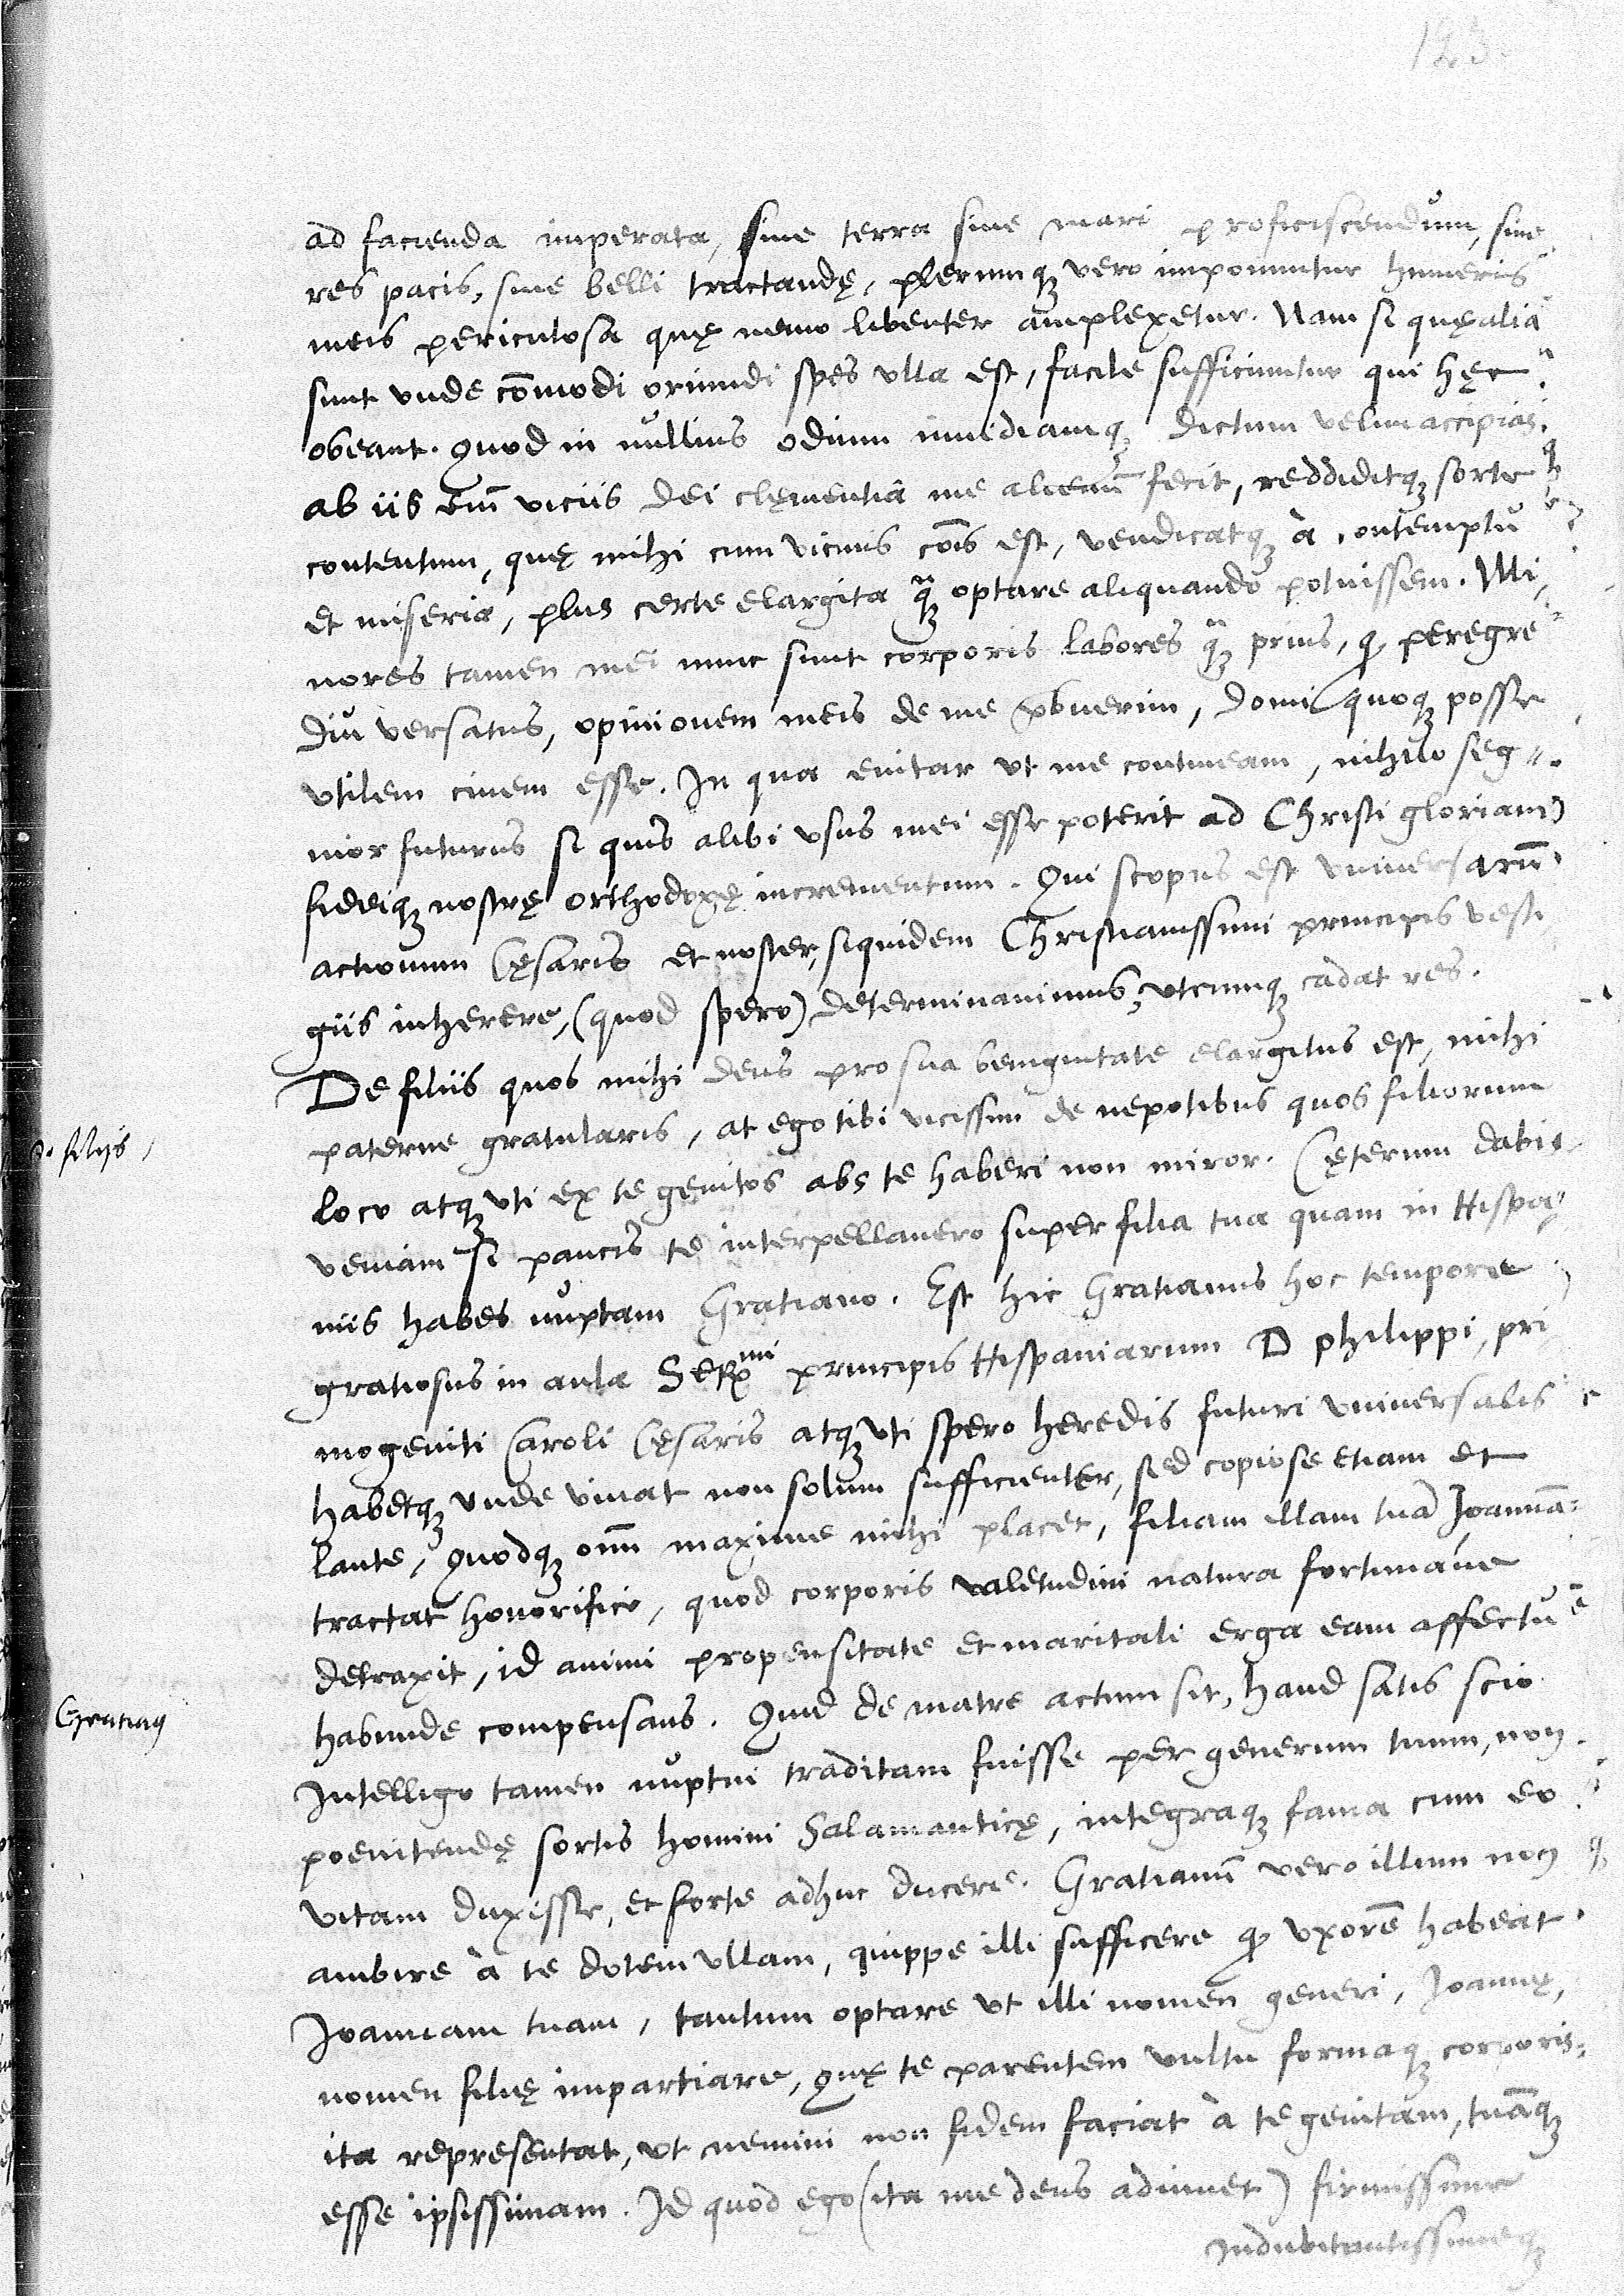 123
ad facienda imperata, siue terra siue mari proficiscendum, siue
res pacis, siue belli tractandę, plerumq vero imponuntur humeris
meis periculosa quę nemo libenter amplexetur. Nam si quę alia
sunt vnde cōmodi oriundi spes vlla est, facile sufficiuntur qui hęc
obeant. Quod in nullius odium inuidiamq dictum velim accipias.
ab iis em̄ viciis dei clęmentia me alienū fecit, reddiditq sorte
contentum, quę mihi cum vicinis cōis est, vendicatq à contemptu
et miseria, plus certe elargita q̃ optare aliquando potuissem. Mi,
nores tamen mei nunc sunt corporis labores q̃ prius, q peregre
diu versatus, opinionem meis de me prbuerim, domi quoq posse
vtilem ciuem esse. In qua enitar vt me contineam, nihilo seg
nior futurus si quis alibi vsus mei esse poterit ad Christi gloriam
fideiq nostrę orthodoxę incrementum. Qui scopus est vniuersarū
actionum Cęsaris et noster, siquidem Christianissimi principis vesti
giis inherere, (quod spero) determinauimus, vtcumq cadat res.
De filiis quos mihi deus pro sua benignitate elargitus est, mihi
paterne gratularis, at ego tibi vicissim de nepotibus quos filiorum
De filijs,
loco atq vti ex te genitos abs te haberi non miror. Cęterum dabis
veniam si paucis te interpellauero super filia tua quam in Hispa
niis habes nuptam Gratiano. Est hic Gratianus hoc tempore
gratiosus in aula Sermi principis Hispaniarum D philippi, pri
mogeniti Caroli Cęsaris atq vti spero heredis futuri vniuersalis
habetq vnde viuat non solum sufficienter, sed copiose etiam et
laute, Quodq om̄ maxime mihi placet, filiam illam tuā Joannā
tractat honorifice, quod corporis valetudini natura fortunáue
detraxit, id animi propensitate et maritali erga eam affectu
habunde compensans. Quid de matre actum sit, haud satis scio
Gratianus
Intelligo tamen nuptui traditam fuisse per generum tuum, non
poenitendę sortis homini Salamanticę, integraq fama cum eo
vitam duxisse, et forte adhuc ducere. Gratianū vero illum non
ambire à te dotem vllam, quippe illi sufficere q vxorē habeat
Joannam tuam, tantum optare vt illi nomen generi, Joannę,
nomen filię impartiare, quę te parentem vultu formaq corporis
ita representat, vt nemini non fidem faciat à te genitam, tuāq
esse ipsissimam. Id quod ego (ita me deus adiuuet) firmissime
Indubitantissimeq